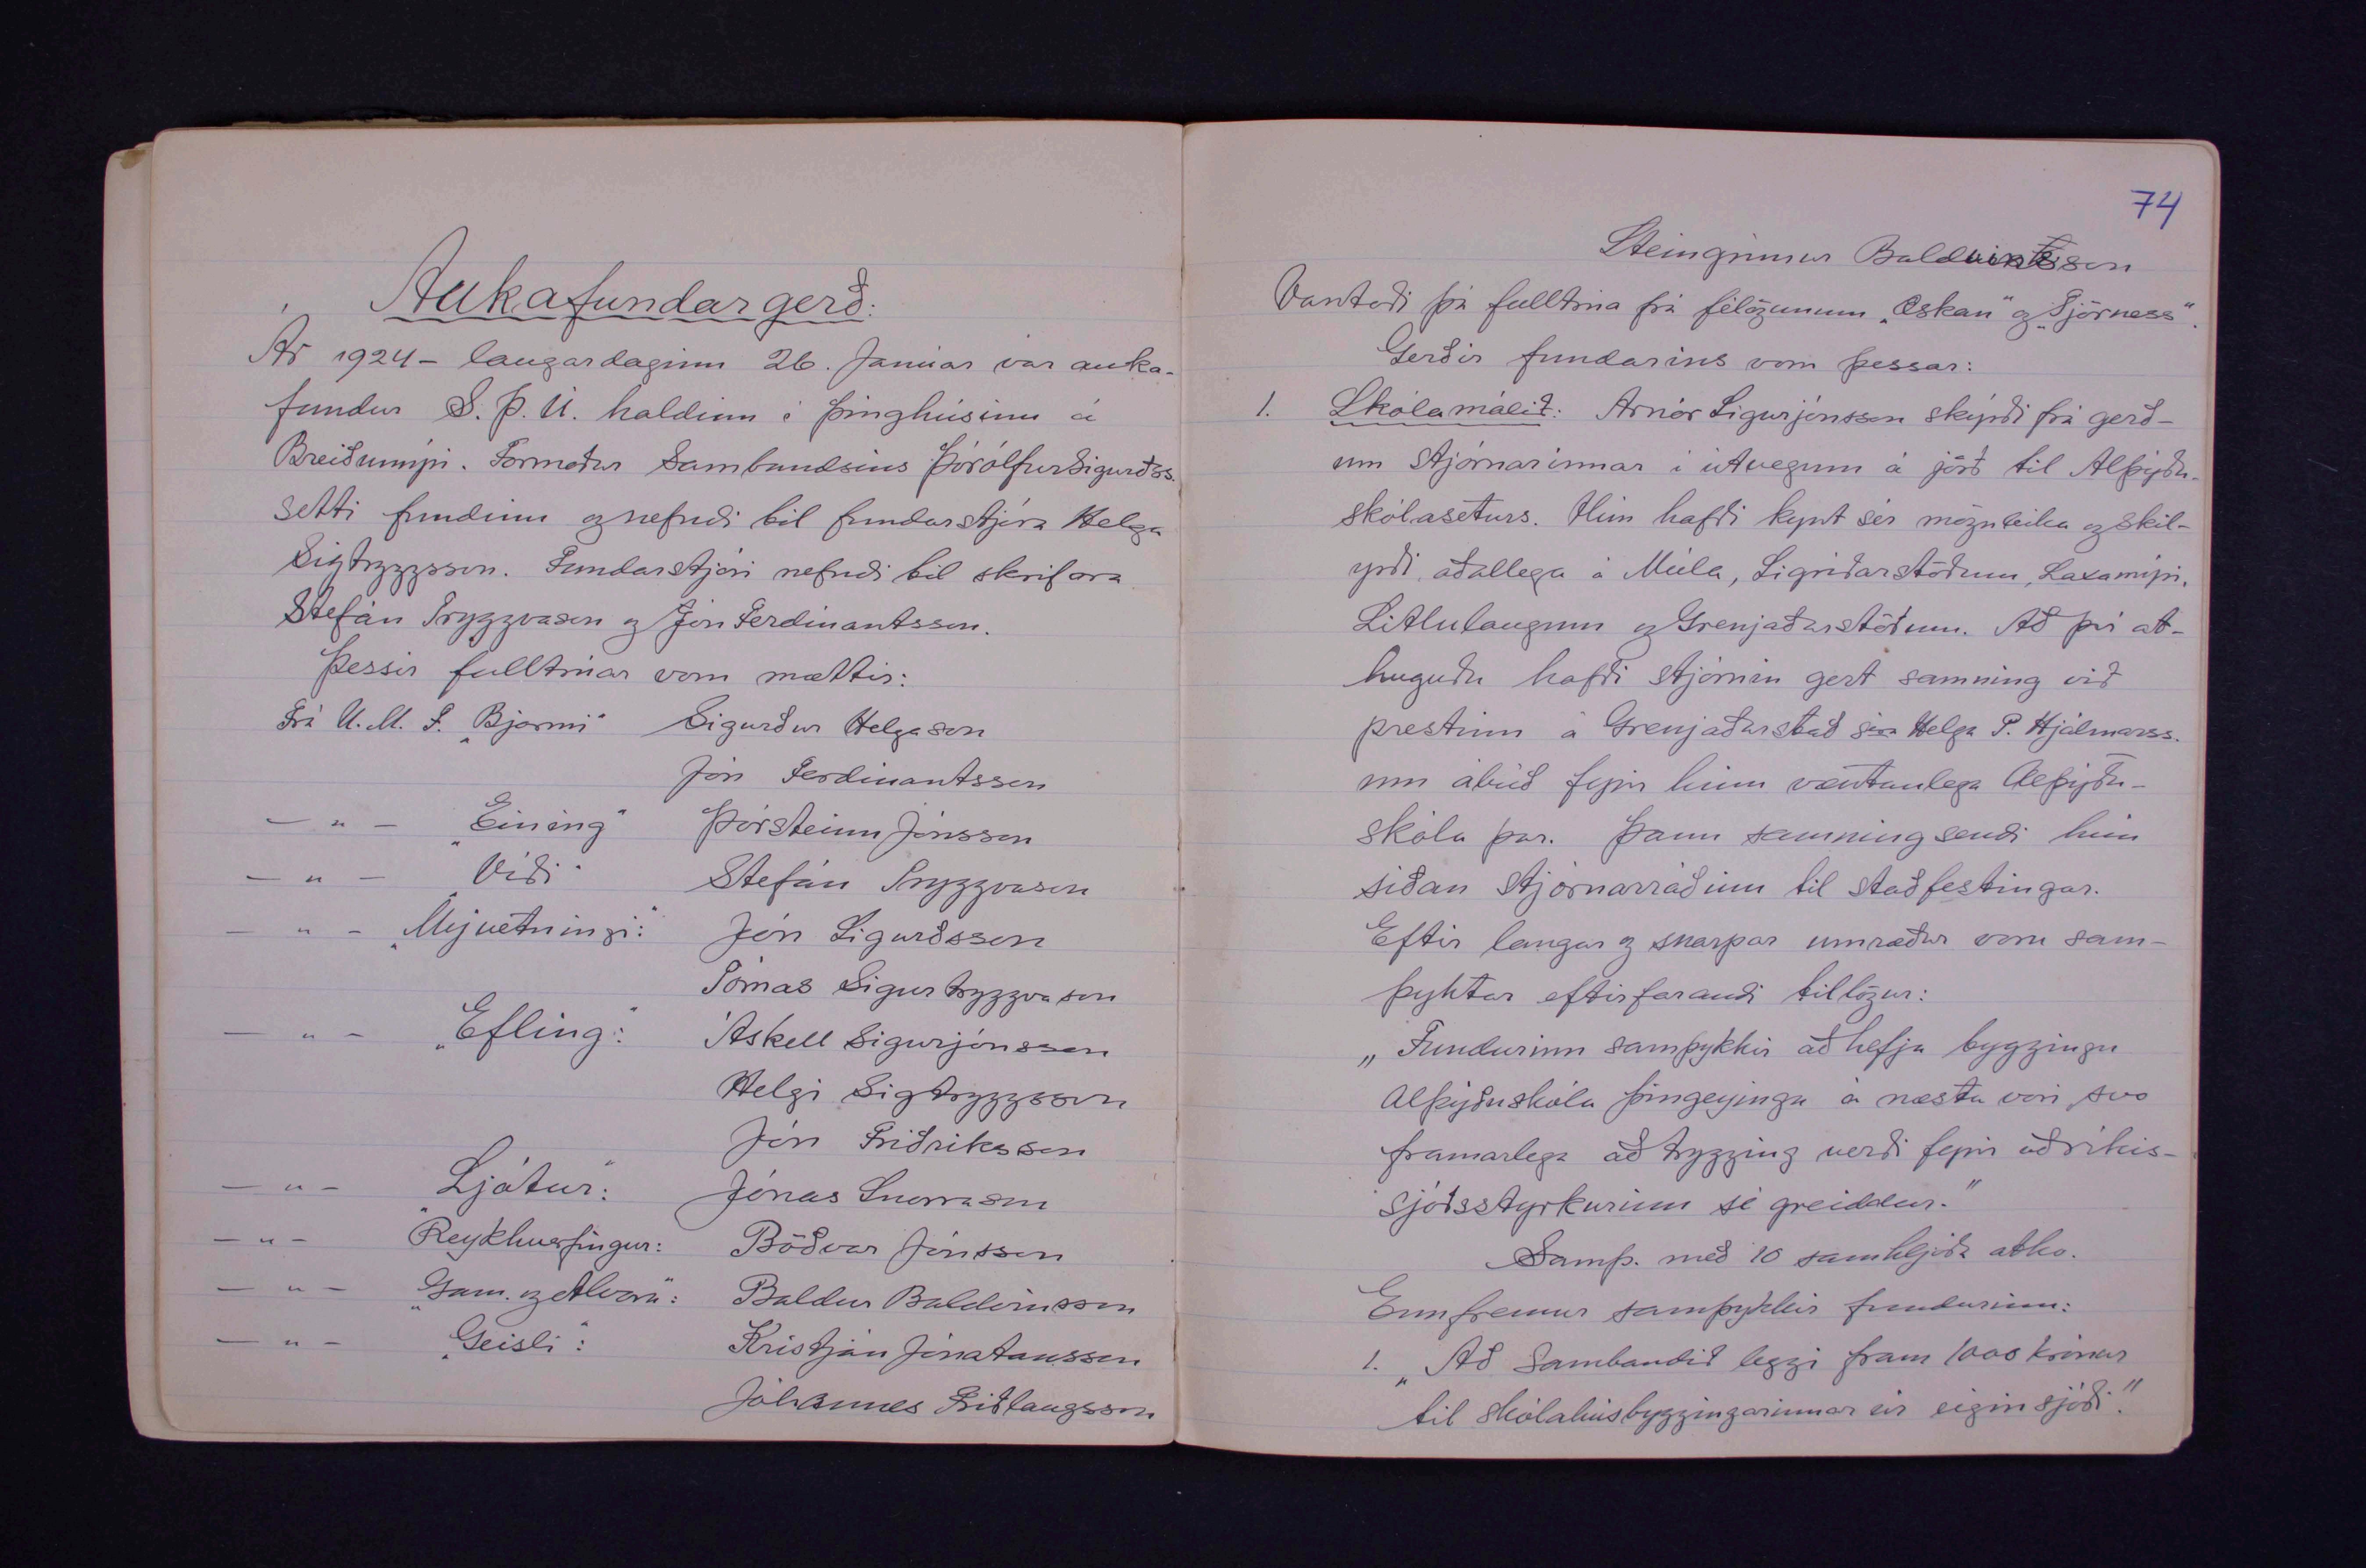 Aukafundargerð:
Ár 1924 - laugardaginn 26. Janúar var auka-
fundur S.Þ.U. haldinn í þinghúsinu á
Breiðumýri. Formaður Sambandsins Þórólfur Sigurðss.
setti fundinn og nefndi til fundarstjóra Helga
Sigtryggsson. Fundarstjóri nefndi til skrifara
Stefán Tryggvason og Jón Ferdinantsson.
Þessir fulltrúar voru mættir:
Frá U.M.F. „Bjarmi" Sigurður Helgason
Jón Ferdinantsson
— " — „Eining" Þórsteinn Jónsson
— " — „Víði" Stefán Tryggvason
— " — „Mývetningi": Jón Sigurðsson
Tómas Sigurtryggvason
— " — „Efling": Áskell Sigurjónsson
Helgi Sigtryggsson
Jón Friðriksson
— " — „Ljótur": Jónas Snorrason
— " — Reykhverfingur: Böðvar Jónsson
— " — „Gam. og Alvara": Baldur Baldvinsson
— " — „Geisli": Kristján Jónatansson
Jóhannes Friðlaugsson
74
Steingrímur Baldvinsson
Vantaði þá fulltrúa frá félögunum „Æskan" og „Tjörness".
Gerðir fundarins voru þessar:
1. Skólamálið: Arnór Sigurjónsson skýrði frá gerð-
um stjórnarinnar í útvegun á jörð til Alþýðu-
skólaseturs. Hún hafði kynt sér möguleika og skil-
yrði aðallega á Múla, Sigríðarstöðum, Laxamýri,
Litlulaugum og Grenjaðarstöðum. Að því at-
huguðu hafði stjórnin gert samning við
prestinn á Grenjaðarstað séra Helga P. Hjálmarss.
um ábúð fyrir hinn væntanlega Alþýðu-
skóla þar. Þann samning sendi hún
síðan Stjórnarráðinu til staðfestingar.
Eftir langar og snarpar umræður voru sam-
þyktar eftirfarandi tillögur:
„Fundurinn samþykkir að hefja byggingu
Alþýðuskóla Þingeyinga á næsta vori, svo
framarlega að trygging verði fyrir að ríkis-
sjóðsstyrkurinn sé greiddur."
Samþ. með 10 samhljóða atkv.
Ennfremur samþykkir fundurinn:
1. „Að Sambandið leggi fram 1000 krónur
til skólahúsbyggingarinnar úr eigin sjóði."